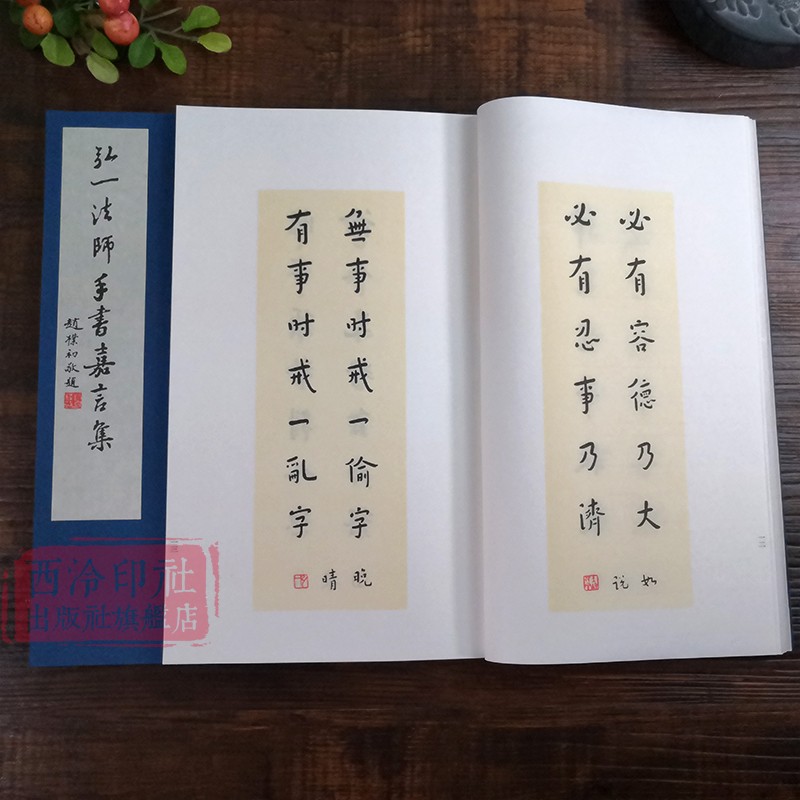 弘一法師手書嘉言集
趙樸初敬題
必有容德乃大
必有忍事乃濟
如說
無事时戒一偷字
有事时戒一亂字
晚晴
三
西泠印社
出版社旗艦店